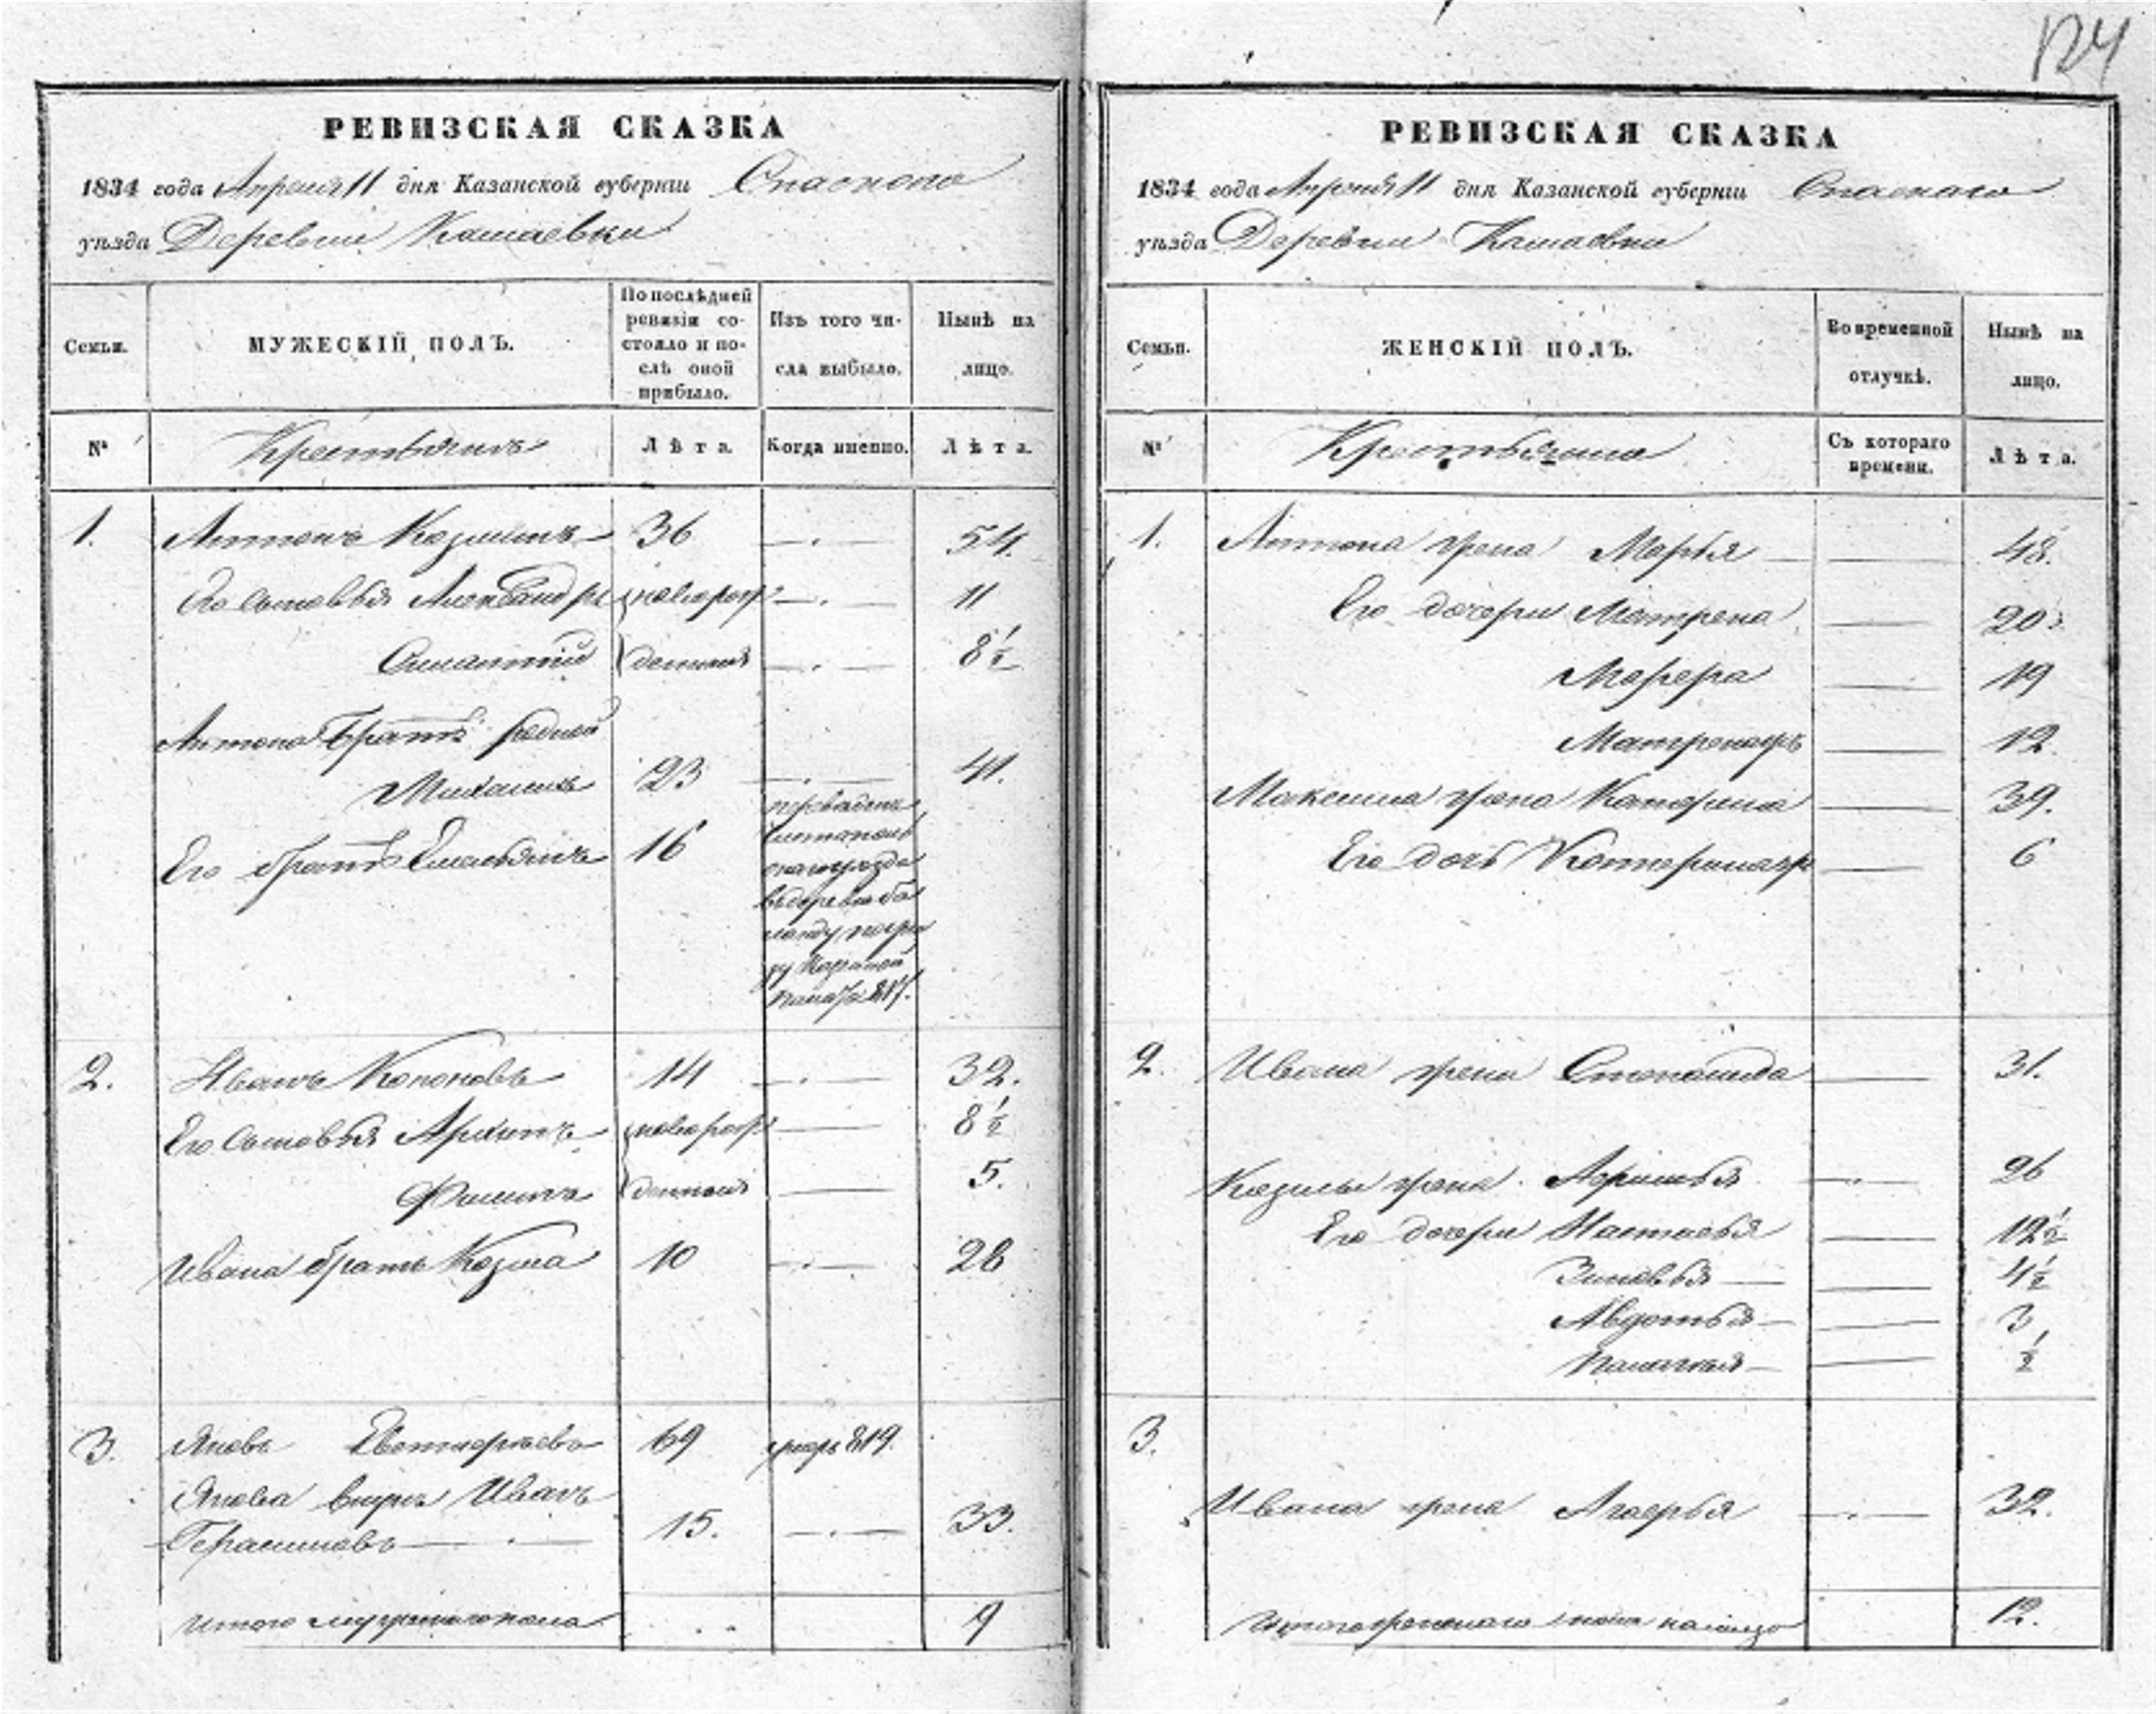 124
РЕВИЗСКАЯ СКАЗКА
1834 года Апреля 11 дня Казанской губернии Спаского
уѣзда Деревни Кашаевки
Семьи.
МУЖЕСКІЙ ПОЛЪ.
По послѣдней
ревизіи со-
стояло и по-
слѣ оной
прибыло.
Изъ того чи-
сла выбыло.
Нынѣ на
лицо.
№
Крестьянъ
Лѣта.
Когда именно.
Лѣта.
1. Антонъ Козминъ 36 54.
Его сыновья Александръ новорож 11
денныя 8 1/2
Антона братъ родной
23 41.
Его братъ Емельянъ 16
переведенъ
2. Иванъ Кононовъ 14 32.
Его сыновья Архипъ новорож 8 1/2
Филипъ денныя 5.
Ивана братъ Козма 10 28
3. Яковъ 69 819.
Якова внукъ Иванъ
Герасимовъ 15. 33.
Итого мужеска пола 9
РЕВИЗСКАЯ СКАЗКА
1834 года Апреля 11 дня Казанской губернии Спаскаго
уѣзда Деревни Кашаевки
Семьи.
ЖЕНСКІЙ ПОЛЪ.
Во временной
отлучкѣ.
Нынѣ на
лицо.
№
Съ котораго
времени.
Лѣта.
1. Антона жена Марья 48.
Его дочери Матрена 20
19
12.
жена Катерина 39.
Его дочь Катерина 6
2. Ивана жена Степанида 31.
Козмы жена 26
Его дочери Настасья 12 1/2
Зиновья 4 1/2
Авдотья 3
1/2
3.
Ивана жена 32.
Итого женскаго пола на лицо 12.